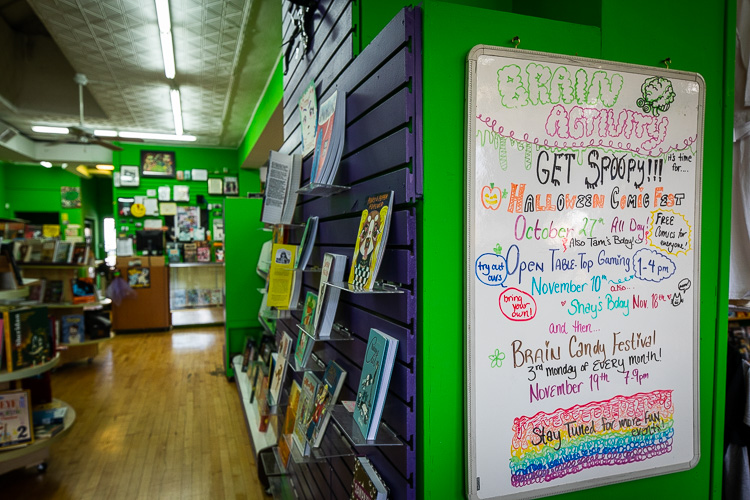 BRAIN
ACTIVITY
GET SPOOPY!!! it's time for...
HALLOWEEN COMIC FEST
October 27th All Day!
Also Tam's Bday!
FREE
Comics for
everyone!
try out
ours
OPEN TABLE-TOP GAMING 1-4pm
November 10th also...
bring
your
own!
Shay's Bday Nov 18th
and then...
BRAIN CANDY FESTIVAL
3rd monday of EVERY month!
November 19th 7-9pm
Stay Tuned for more FUN
events!